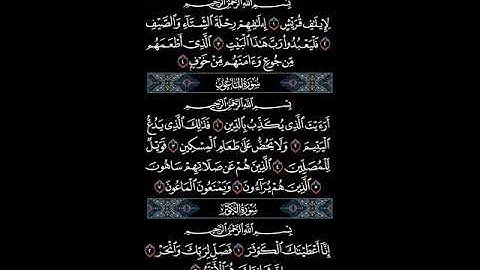 بِسْمِ اللَّهِ الرَّحْمَٰنِ الرَّحِيمِ
لِإِيلَافِ قُرَيْشٍ ١ إِيلَافِهِمْ رِحْلَةَ الشِّتَاءِ وَالصَّيْفِ
٢ فَلْيَعْبُدُوا رَبَّ هَٰذَا الْبَيْتِ ٣ الَّذِي أَطْعَمَهُم
مِّن جُوعٍ وَآمَنَهُم مِّنْ خَوْفٍ ٤
سُورَةُ الْمَاعُونِ
بِسْمِ اللَّهِ الرَّحْمَٰنِ الرَّحِيمِ
أَرَءَيْتَ الَّذِي يُكَذِّبُ بِالدِّينِ ١ فَذَٰلِكَ الَّذِي يَدُعُّ
الْيَتِيمَ ٢ وَلَا يَحُضُّ عَلَىٰ طَعَامِ الْمِسْكِينِ ٣ فَوَيْلٌ
لِّلْمُصَلِّينَ ٤ الَّذِينَ هُمْ عَن صَلَاتِهِمْ سَاهُونَ
٥ الَّذِينَ هُمْ يُرَاءُونَ ٦ وَيَمْنَعُونَ الْمَاعُونَ ٧
سُورَةُ الْكَوْثَرِ
بِسْمِ اللَّهِ الرَّحْمَٰنِ الرَّحِيمِ
إِنَّا أَعْطَيْنَاكَ الْكَوْثَرَ ١ فَصَلِّ لِرَبِّكَ وَانْحَرْ ٢
إِنَّ شَانِئَكَ هُوَ الْأَبْتَرُ